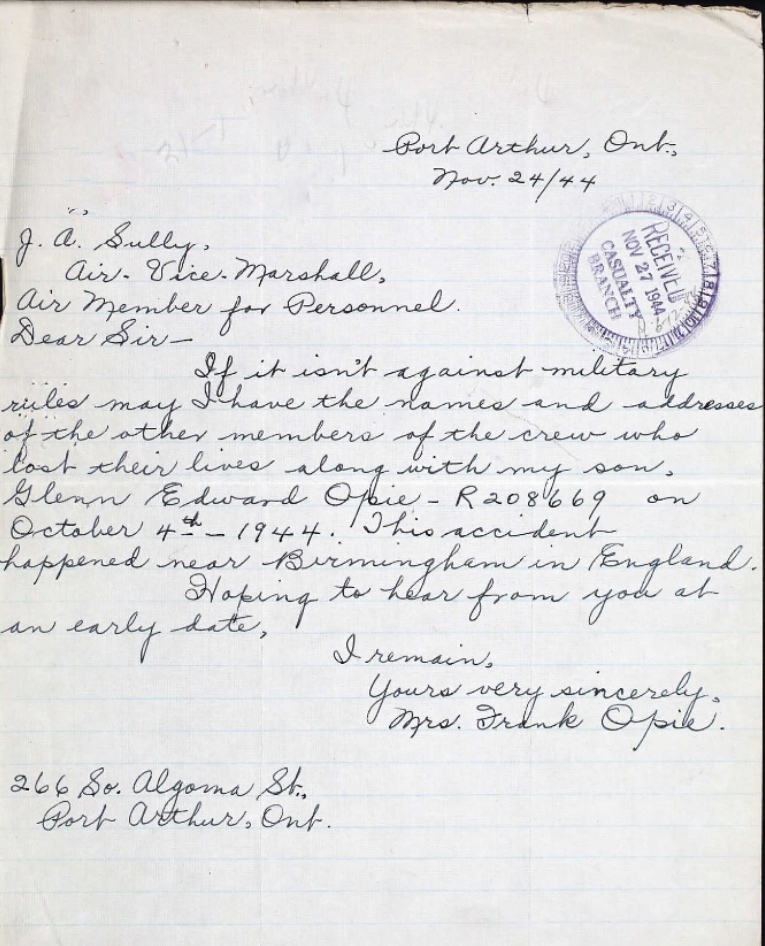 Port Arthur, Ont.,
Nov. 24/44
J. A. Sully,
Air-Vice-Marshall,
Air Member for Personnel.
Dear Sir—
If it isn't against military
rules may I have the names and addresses
of the other members of the crew who
lost their lives along with my son,
Glenn Edward Opie - R208669 on
October 4th - 1944. This accident
happened near Birmingham in England.
Hoping to hear from you at
an early date,
I remain,
Yours very sincerely,
Mrs. Frank Opie.
266 So. Algoma St.,
Port Arthur, Ont.
RECEIVED
NOV 27 1944
CASUALTY
BRANCH